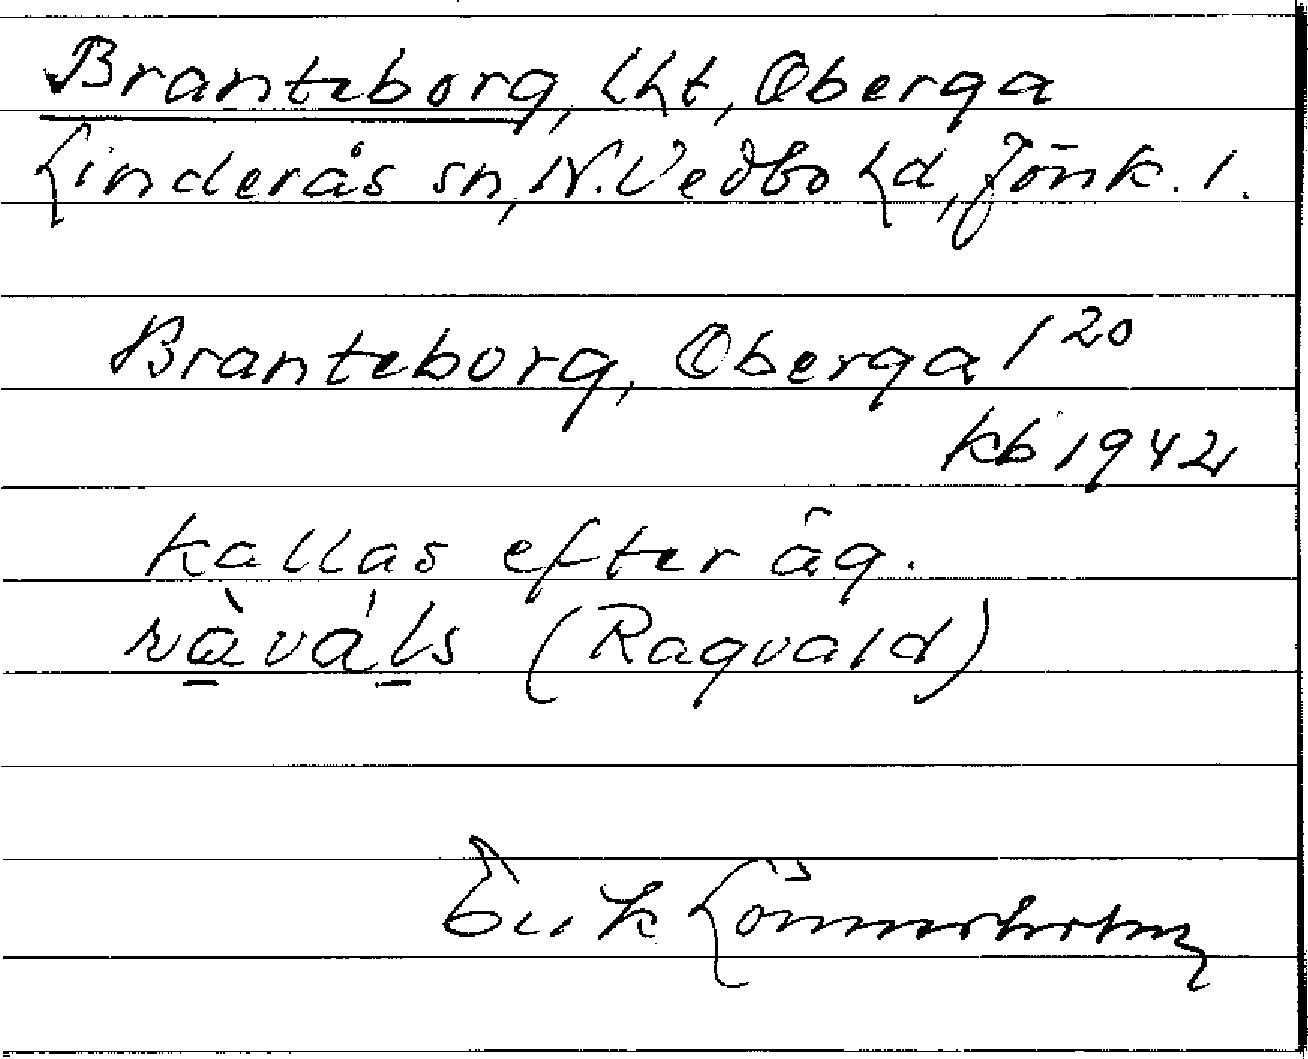 Branteborg, lht, Oberga
Linderås sn, N. Vedbo hd, Jönk. l.
Branteborg, Oberga 1²⁰
kb 1942
kallas efter äg.
ràváls (Ragvald)
Erik Lönnerholm